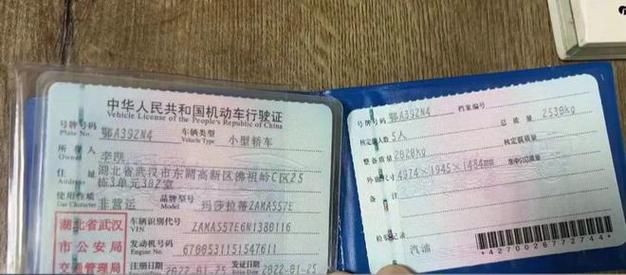 中华人民共和国机动车行驶证
Vehicle License of the People's Republic of China
号牌号码 鄂A392N4 车辆类型 小型轿车
Plate No. Vehicle Type
所有人 李凯
Owner
住址 湖北省武汉市东湖高新区佛祖岭C区25栋3单元302室
Address
使用性质 非营运 品牌型号 玛莎拉蒂ZAMAS57E
Use Character
湖北省武汉市公安局交通管理局
车辆识别代号 ZAMAS57E6N1380116
VIN
发动机号码 6700531151547611
Engine No.
注册日期 2022-01-25 发证日期 2022-01-25
号牌号码 鄂A392N4 档案编号
核定载人数 5人 总质量 2538kg
整备质量 2020kg 核定载质量
外廓尺寸 4374×1945×1484mm
备注
检验记录
汽油
*4270026772744*